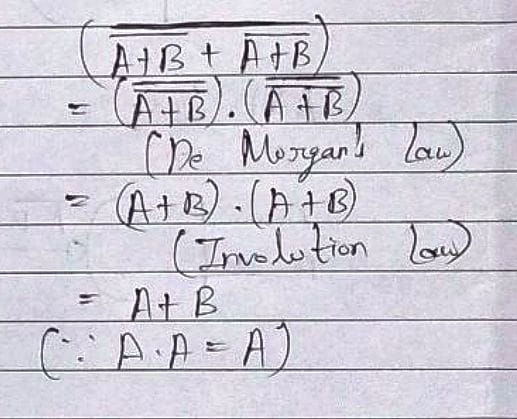 (‾(‾(A+B) + ‾(A+B)))
= (‾‾(A+B)).(‾‾(A+B))
(De Morgan's Law)
= (A+B).(A+B)
(Involution Law)
= A+B
(∵ A.A = A)